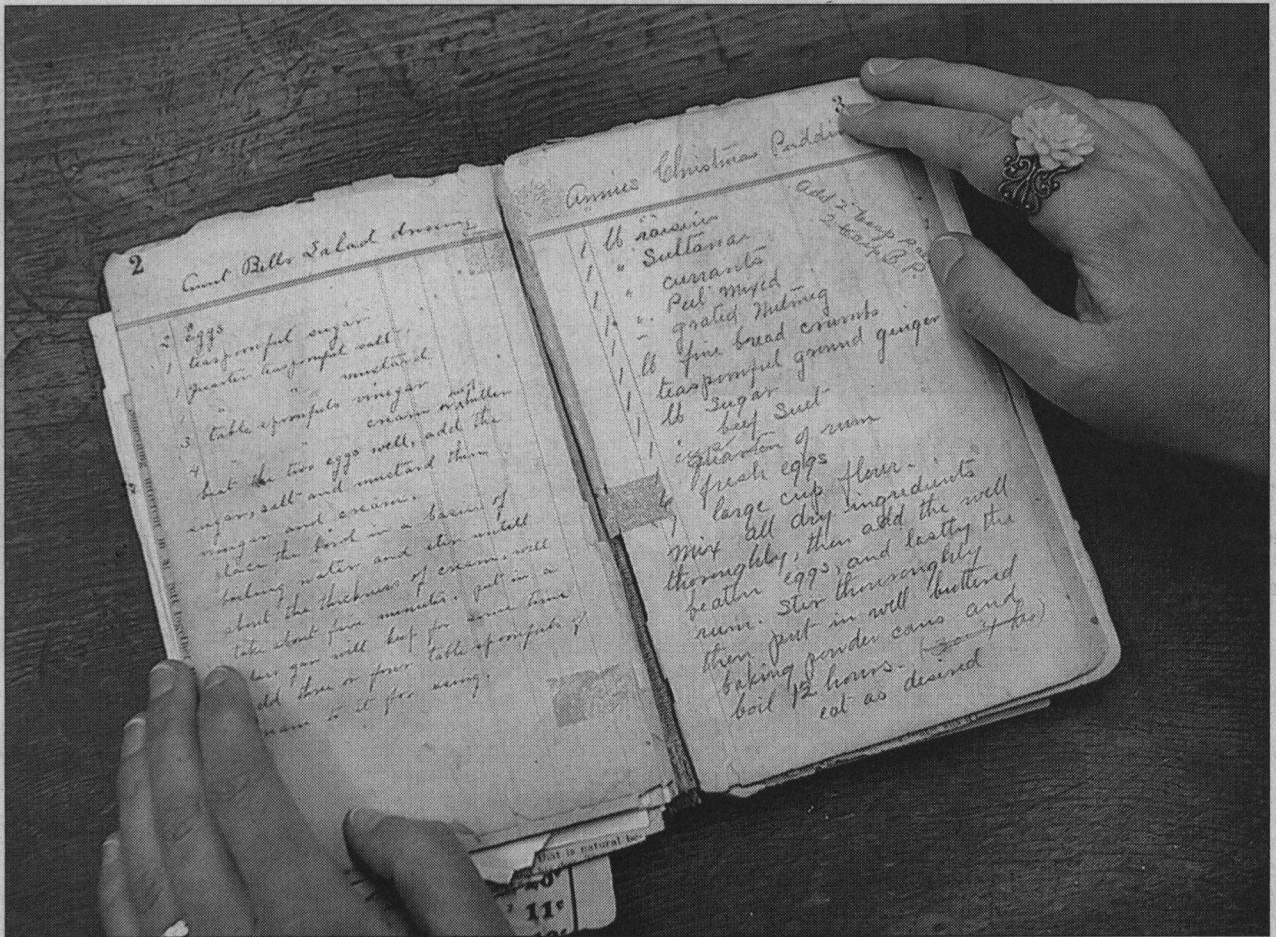 2
Aunt Bells Salad dressing
2 Eggs
1 teaspoonful sugar
1 quarter teaspoonful salt
1 " " mustard
3 tablespoonfuls vinegar
4 " " cream or butter
beat the two eggs well, add the
sugar, salt and mustard then
vinegar and cream.
place the bowl in a basin of
boiling water and stir untill
about the thickness of cream, will
take about five minutes. put in a
jar will keep for some time
add three or four tablespoonfuls of
cream to it for using.
3
Annies Christmas Puddin
add 2 teasp
2 teasp B.P.
1 lb raisins
1 " Sultanas
1 " currants
" Peel Mixed
1 grated Nutmeg
1 lb fine bread crumbs
1 teaspoonful ground ginger
1 lb Sugar
1 " beef Suet
of rum
fresh eggs
1 large cup flour.
Mix all dry ingredients
thoroughly, then add the well
beaten eggs, and lastly the
rum. Stir thoroughly
then put in well buttered
baking powder cans and
boil 12 hours.
eat as desired
that is natural
11